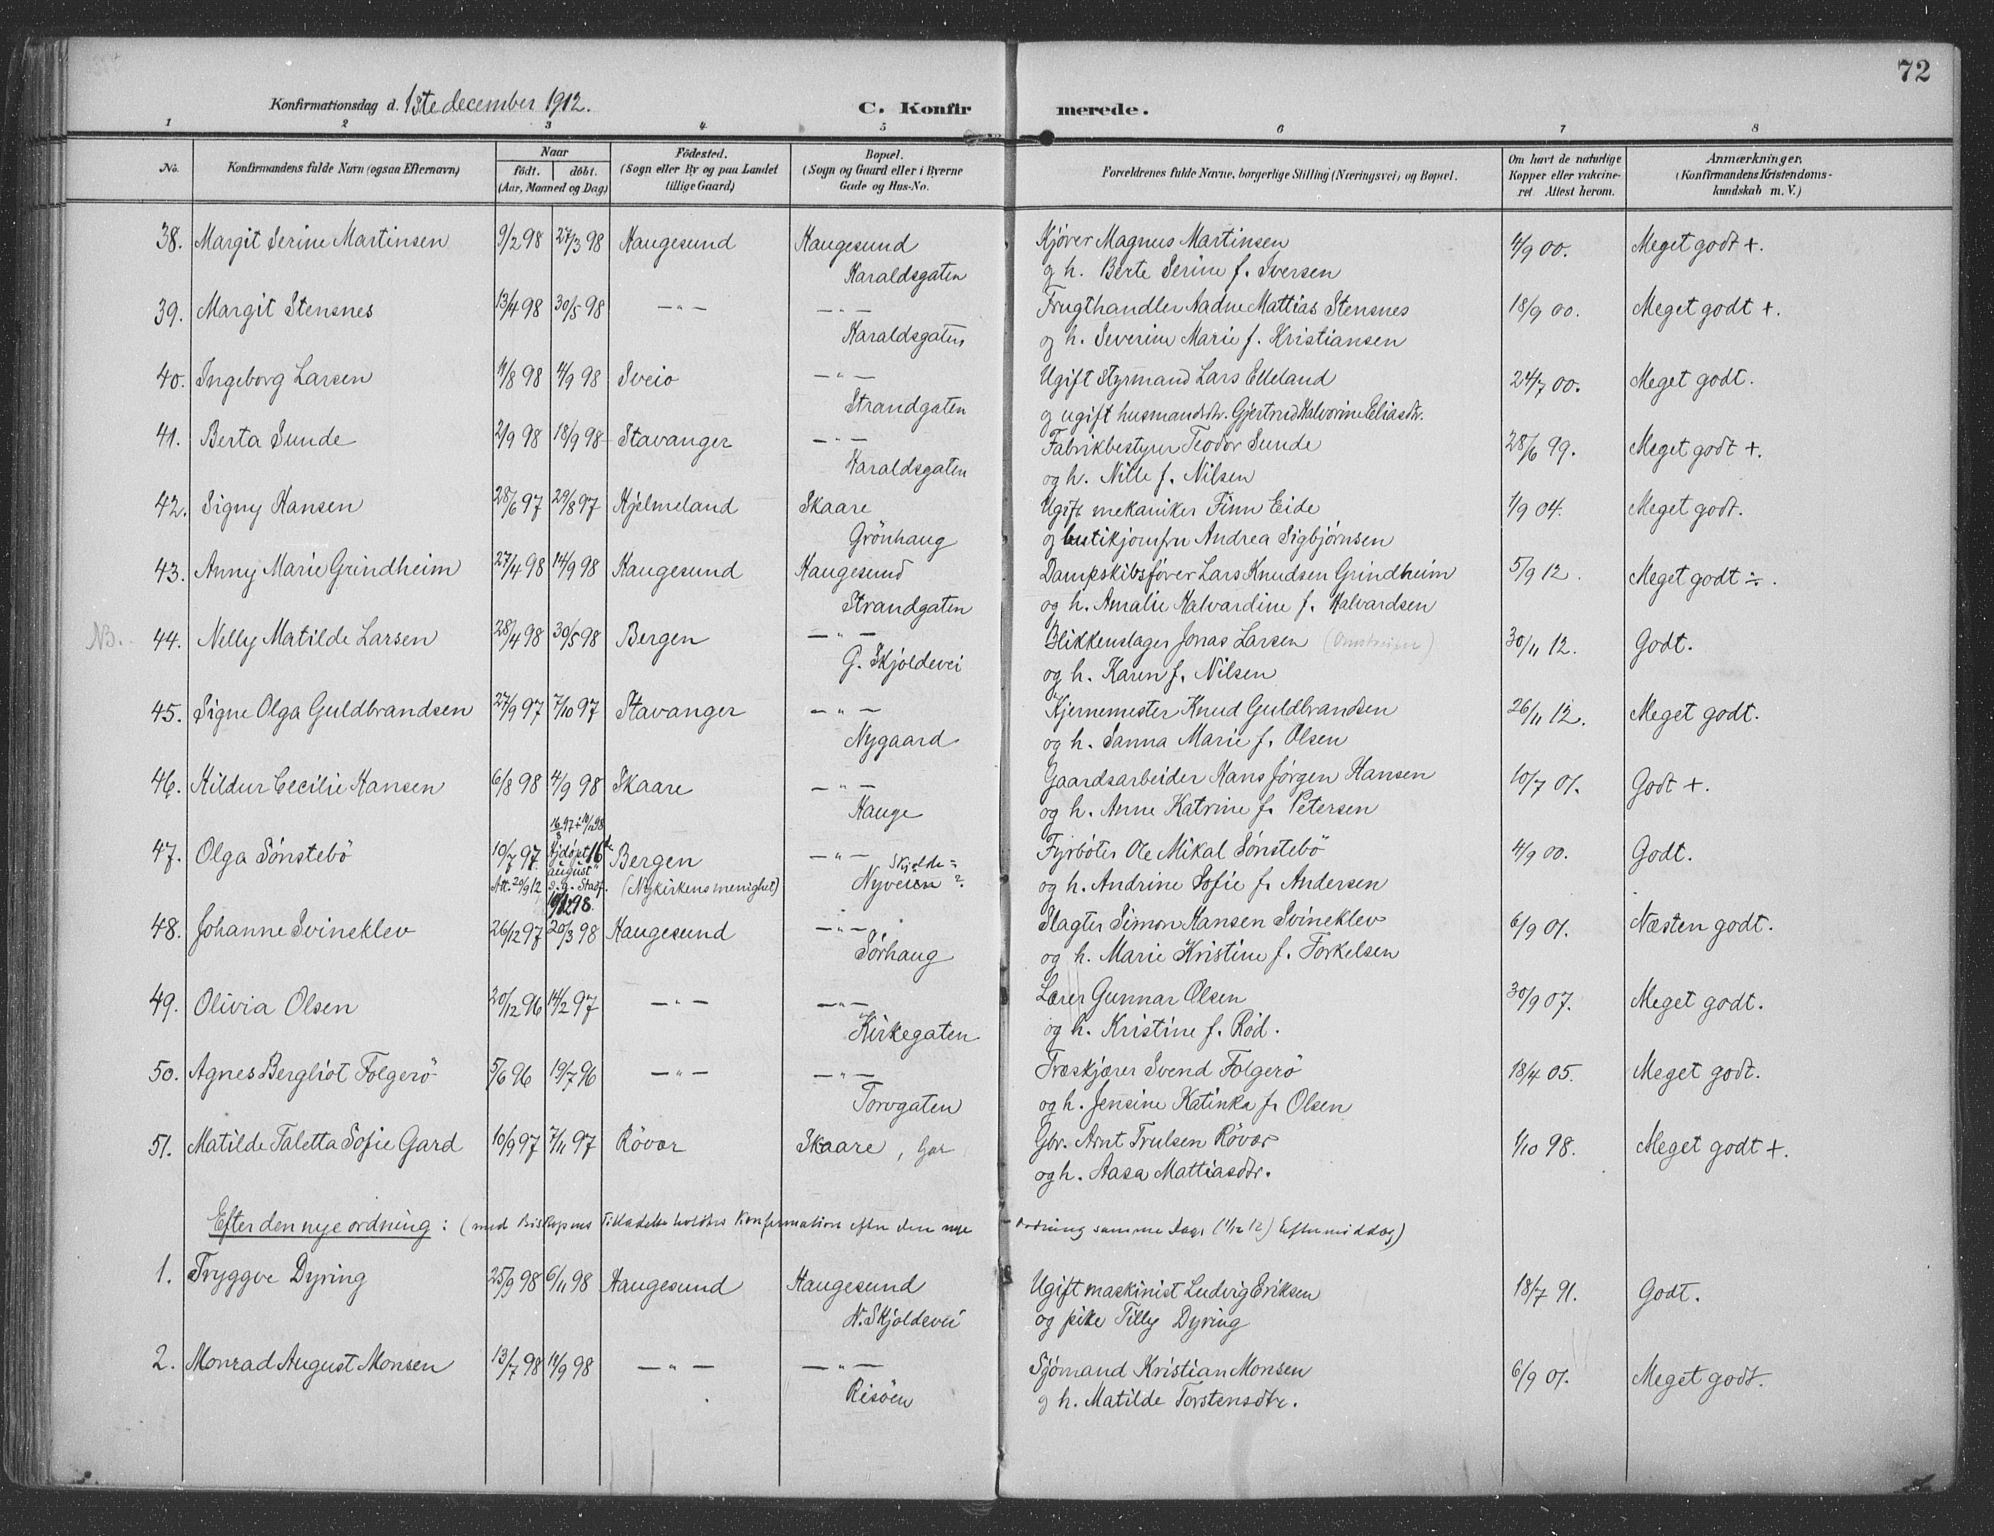 72
Konfirmationsdag d. 1ste december 1912. C. Konfirmerede.
1 2 3 4 5 6 7 8
No. Konfirmandens fulde Navn (ogsaa Efternavn) Naar født. døbt. (Aar, Maaned og Dag) Fødested. (Sogn eller By og paa Landet tillige Gaard) Bopæl. (Sogn og Gaard eller i Byerne Gade og Hus-No. Forældrenes fulde Navne, borgerlige Stilling (Næringsvei) og Bopæl. Om havt de naturlige Kopper eller vakcineret Attest herom. Anmærkninger. (Konfirmandens Kristendomskundskab m. V.)
38. Margit Serine Martinsen 9/2 98 27/3 98 Haugesund Haugesund Kjører Magnus Martinsen 4/9 00. Meget godt +.
Haraldsgaten og h. Berte Serine f. Iversen
39. Margit Stensnes 13/4 98 30/5 98 — " — — " — Frugthandler Aadne Mattias Stensnes 18/9 00. Meget godt +.
Haraldsgaten og h. Severine Marie f. Kristiansen
40. Ingeborg Larsen 11/8 98 4/9 98 Sveio — " — Ugift Styrmand Lars Elleland 24/7 00. Meget godt.
Strandgaten og ugift husmandsdtr. Gjertrud Halvorine Eliasdtr.
41. Berta Sunde 2/9 98 18/9 98 Stavanger — " — Fabrikbestyrer Teodor Sunde 28/6 99. Meget godt +.
Haraldsgaten og h. Nille f. Nilsen
42. Signy Hansen 28/6 97 29/8 97 Hjelmeland Skaare Ugift mekaniker Finn Eide 1/9 04. Meget godt.
Grönhaug og butikjomfru Andrea Sigbjørnsen
43. Anny Marie Grindheim 27/4 98 14/9 98 Haugesund Haugesund Dampskibsfører Lars Knudsen Grindheim 5/9 12. Meget godt ÷.
Strandgaten og h. Amalie Halvardine f. Halvardsen
NB. 44. Nelly Matilde Larsen 28/4 98 30/5 98 Bergen — " — Blikkenslager Jonas Larsen 30/11 12. Godt.
G. Skjoldevei og h. Karen f. Nilsen
45. Signe Olga Guldbrandsen 27/9 97 7/10 97 Stavanger — " — Kjernemester Knud Guldbrandsen 26/11 12. Meget godt.
Nygaard og h. Sanna Marie f. Olsen
46. Hildur Cecilie Hansen 6/8 98 4/9 98 Skaare — " — Gaardsarbeider Hans Jørgen Hansen 10/7 01. Godt +.
Hauge og h. Anne Katrine f. Petersen
47. Olga Sønstebö 10/7 97 Hjdøpt 16 august Bergen — " — Skjolde= Fyrböter Ole Mikal Sønstebö 4/9 00. Godt.
Att. 20/9 12 (Nykirkens menighet) Nyveien ? og h. Andrine Sofie f. Andersen
48. Johanne Svineklev 26/12 97 20/3 98 Haugesund — " — Slagter Simon Hansen Svineklev 6/9 01. Næsten godt.
Sørhaug og h. Marie Kristine f. Torkelsen
49. Olivia Olsen 20/12 96 14/2 97 — " — — " — Lærer Gunnar Olsen 30/9 07. Meget godt.
Kirkegaten og h. Kristine f. Rød.
50. Agnes Bergliot Folgerö 5/6 96 19/7 96 — " — — " — Træskjærer Svend Folgerö 18/4 05. Meget godt.
Torvgaten og h. Jensine Katinka f. Olsen
51. Matilde Taletta Sofie Gard 10/9 97 7/11 97 Røvær Skaare, Gar Gbr. Arnt Trulsen Røvær 1/10 98. Meget godt +.
og h. Aasa Mattiasdtr.
Efter den nye ordning: (med Biskopens Tilladelse holdtes Konfirmation efter den nye Ordning samme Dags (1/12 12) Eftermiddag)
1. Tryggve Dyring 25/9 98 6/11 98 Haugesund Haugesund Ugift maskinist Ludvig Eriksen 18/7 91. Godt.
N. Skjoldevei og pike Tilly Dyring
2. Monrad August Monsen 13/7 98 14/9 98 — " — — " — Sjömand Kristian Monsen 6/9 01. Meget godt.
Risöen og h. Matilde Torstensdtr.